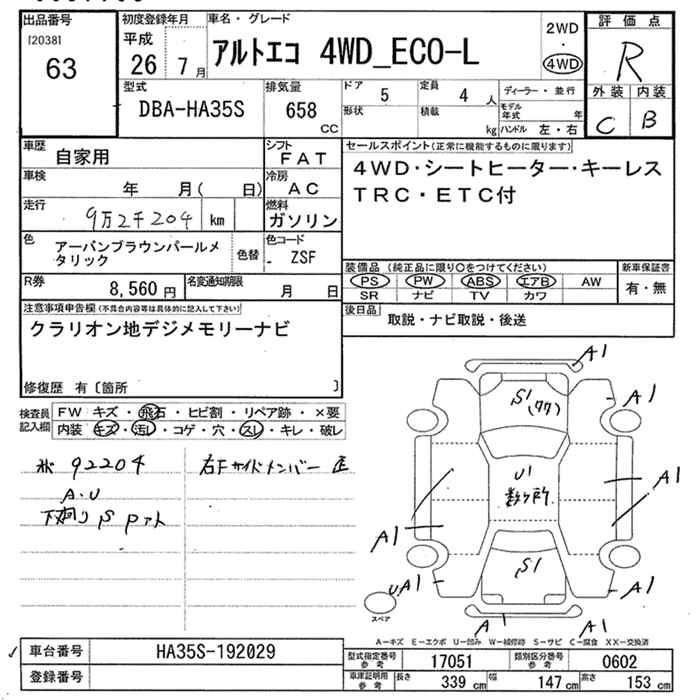 出品番号
[2038]
63
初度登録年月
平成
26 7月
車名・グレード
アルトエコ 4WD_ECO-L
2WD
・
4WD
評価点
R
外装 内装
C B
型式
DBA-HA35S
排気量
658
CC
ドア 5
定員 4 人
形状
積載 kg
ディーラー・並行
モデル年式 年
ハンドル 左・右
車歴
自家用
シフト
FAT
車検
年 月( 日)
冷房
AC
走行
9万2千204 km
燃料
ガソリン
色
アーバンブラウンパールメ
タリック
色替
色コード
- ZSF
R券 8,560 円
名変通知期限
月 日
セールスポイント(正常に機能するものに限ります)
4WD・シートヒーター・キーレス
TRC・ETC付
装備品 (純正品に限り○をつけてください)
PS PW ABS エアB AW
SR ナビ TV カワ
新車保証書
有・無
後日品
取説・ナビ取説・後送
注意事項申告欄(不具合内容等は具体的に記入して下さい)
クラリオン地デジメモリーナビ
修復歴 有〔箇所 〕
検査員
記入欄
FW キズ・飛石・ヒビ割・リペア跡・×要
内装 キズ・汚レ・コゲ・穴・スレ・キレ・破レ
92204
A.U
下廻りS
右Fサイドメンバー
A1
S1
A1
A1
U1
数ヶ所
A1
A1
A1
S1
UA1
A1
スペア
A1
A1
A-キズ E-エクボ U-凹み W-補修跡 S-サビ C-腐食 XX-交換済
車台番号
HA35S-192029
登録番号
型式指定番号
参考
17051
類別区分番号
参考
0602
車庫証明用
参考
長さ 339 cm
幅 147 cm
高さ 153 cm